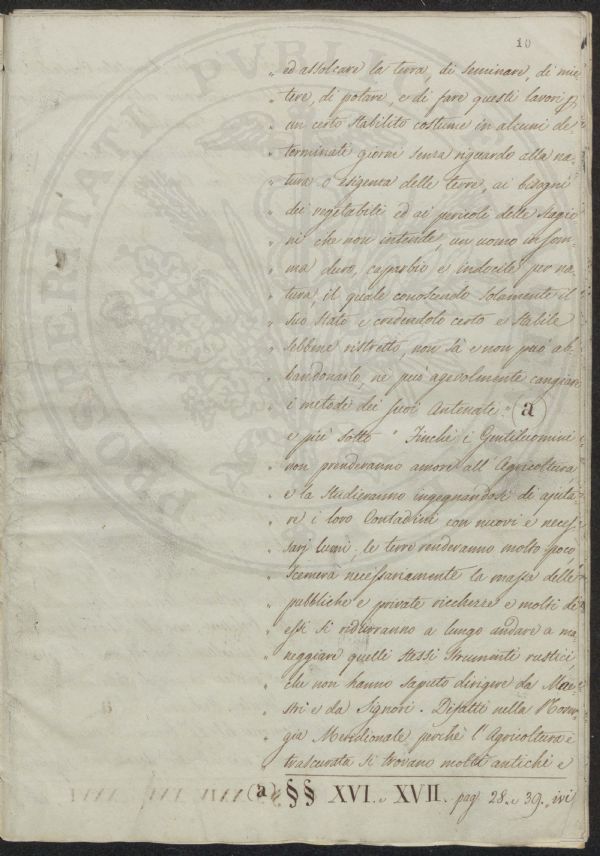 10
" ed assolcare la terra, di seminare, di mie-
" tere, di potare, e di fare questi lavori p
" un certo stabilito costume in alcuni de
" terminati giorni senza riguardo alla na-
" tura o esigenza delle terre, ai bisogni
" dei vegetabili ed ai pericoli delle stagio
" ni che non intende, un uomo in som-
" ma duro, caparbio e indocile per na-
" tura, il quale conoscendo solamente il
" suo stato e credendolo certo e stabile
" sebbene ristretto, non sà e non può ab-
" bandonarlo, nè può agevolmente cangiare
" i metodi dei suoi Antenati " (a)
" e più sotto " Finchè i Gentiluomini
" non prenderanno amore all' Agricoltura
" e la studieranno ingegnandosi di ajuta-
" re i loro Contadini con nuovi e neces-
" sarj lumi, le terre renderanno molto poco
" scemerà necessariamente la massa delle
" pubbliche e private ricchezze e molti di
" essi si ridurranno a lungo andare a ma
" neggiare quelli stessi strumenti rustici,
" che non hanno saputo dirigere da Mae
" stri e da Signori. Difatti nella Norve-
" gia Meridionale, perchè l' Agricoltura è
" trascurata si trovano molti antichi e
(a) §§ XVI. e XVII. pag 28. e 39. ivi
PROSPERITATI PVBLICAE